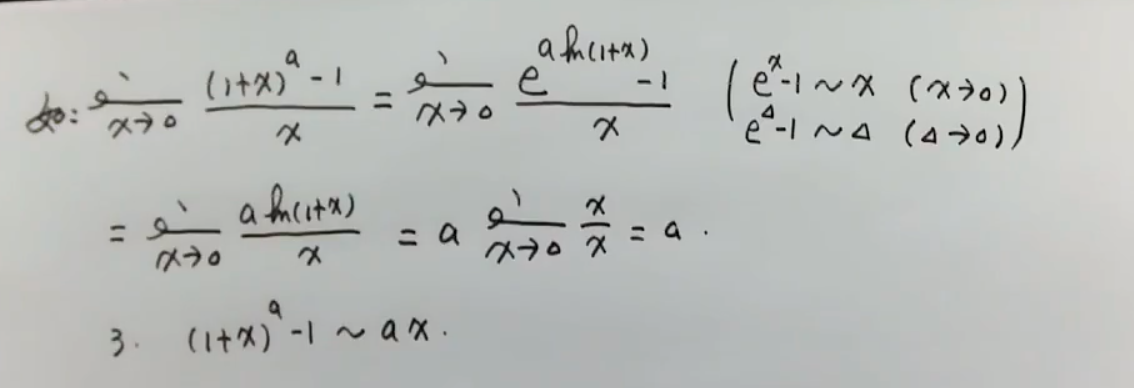 如: lim_{x→0} ((1+x)^a - 1)/x = lim_{x→0} (e^{a ln(1+x)} - 1)/x (e^x - 1 ~ x (x→0)
e^Δ - 1 ~ Δ (Δ→0))
= lim_{x→0} (a ln(1+x))/x = a lim_{x→0} x/x = a.
3. (1+x)^a - 1 ~ ax.